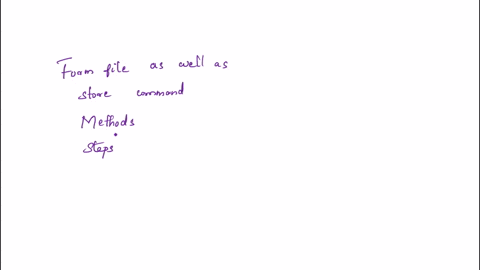 Foam file as well as
store command
Methods
Steps